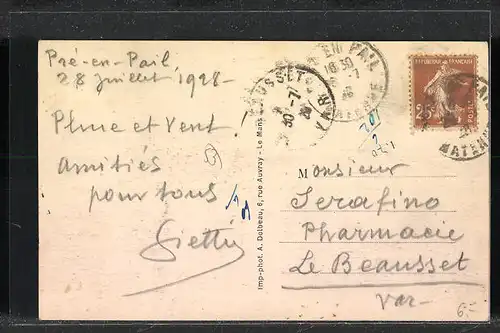 Pré-en-Pail
28 juillet 1928
Pluie et Vent!
amitiés
pour tous
Imp-phot. A. Dolbeau, 6, rue Auvray - Le Mans
EN PAIL
16 30
MAYENNE
BEAUSSET
VAR
30-7
REPUBLIQUE FRANÇAISE
25c
POSTES
MAYENNE
Monsieur
Serafino
Pharmacie
Le Beausset
Var-
6,-